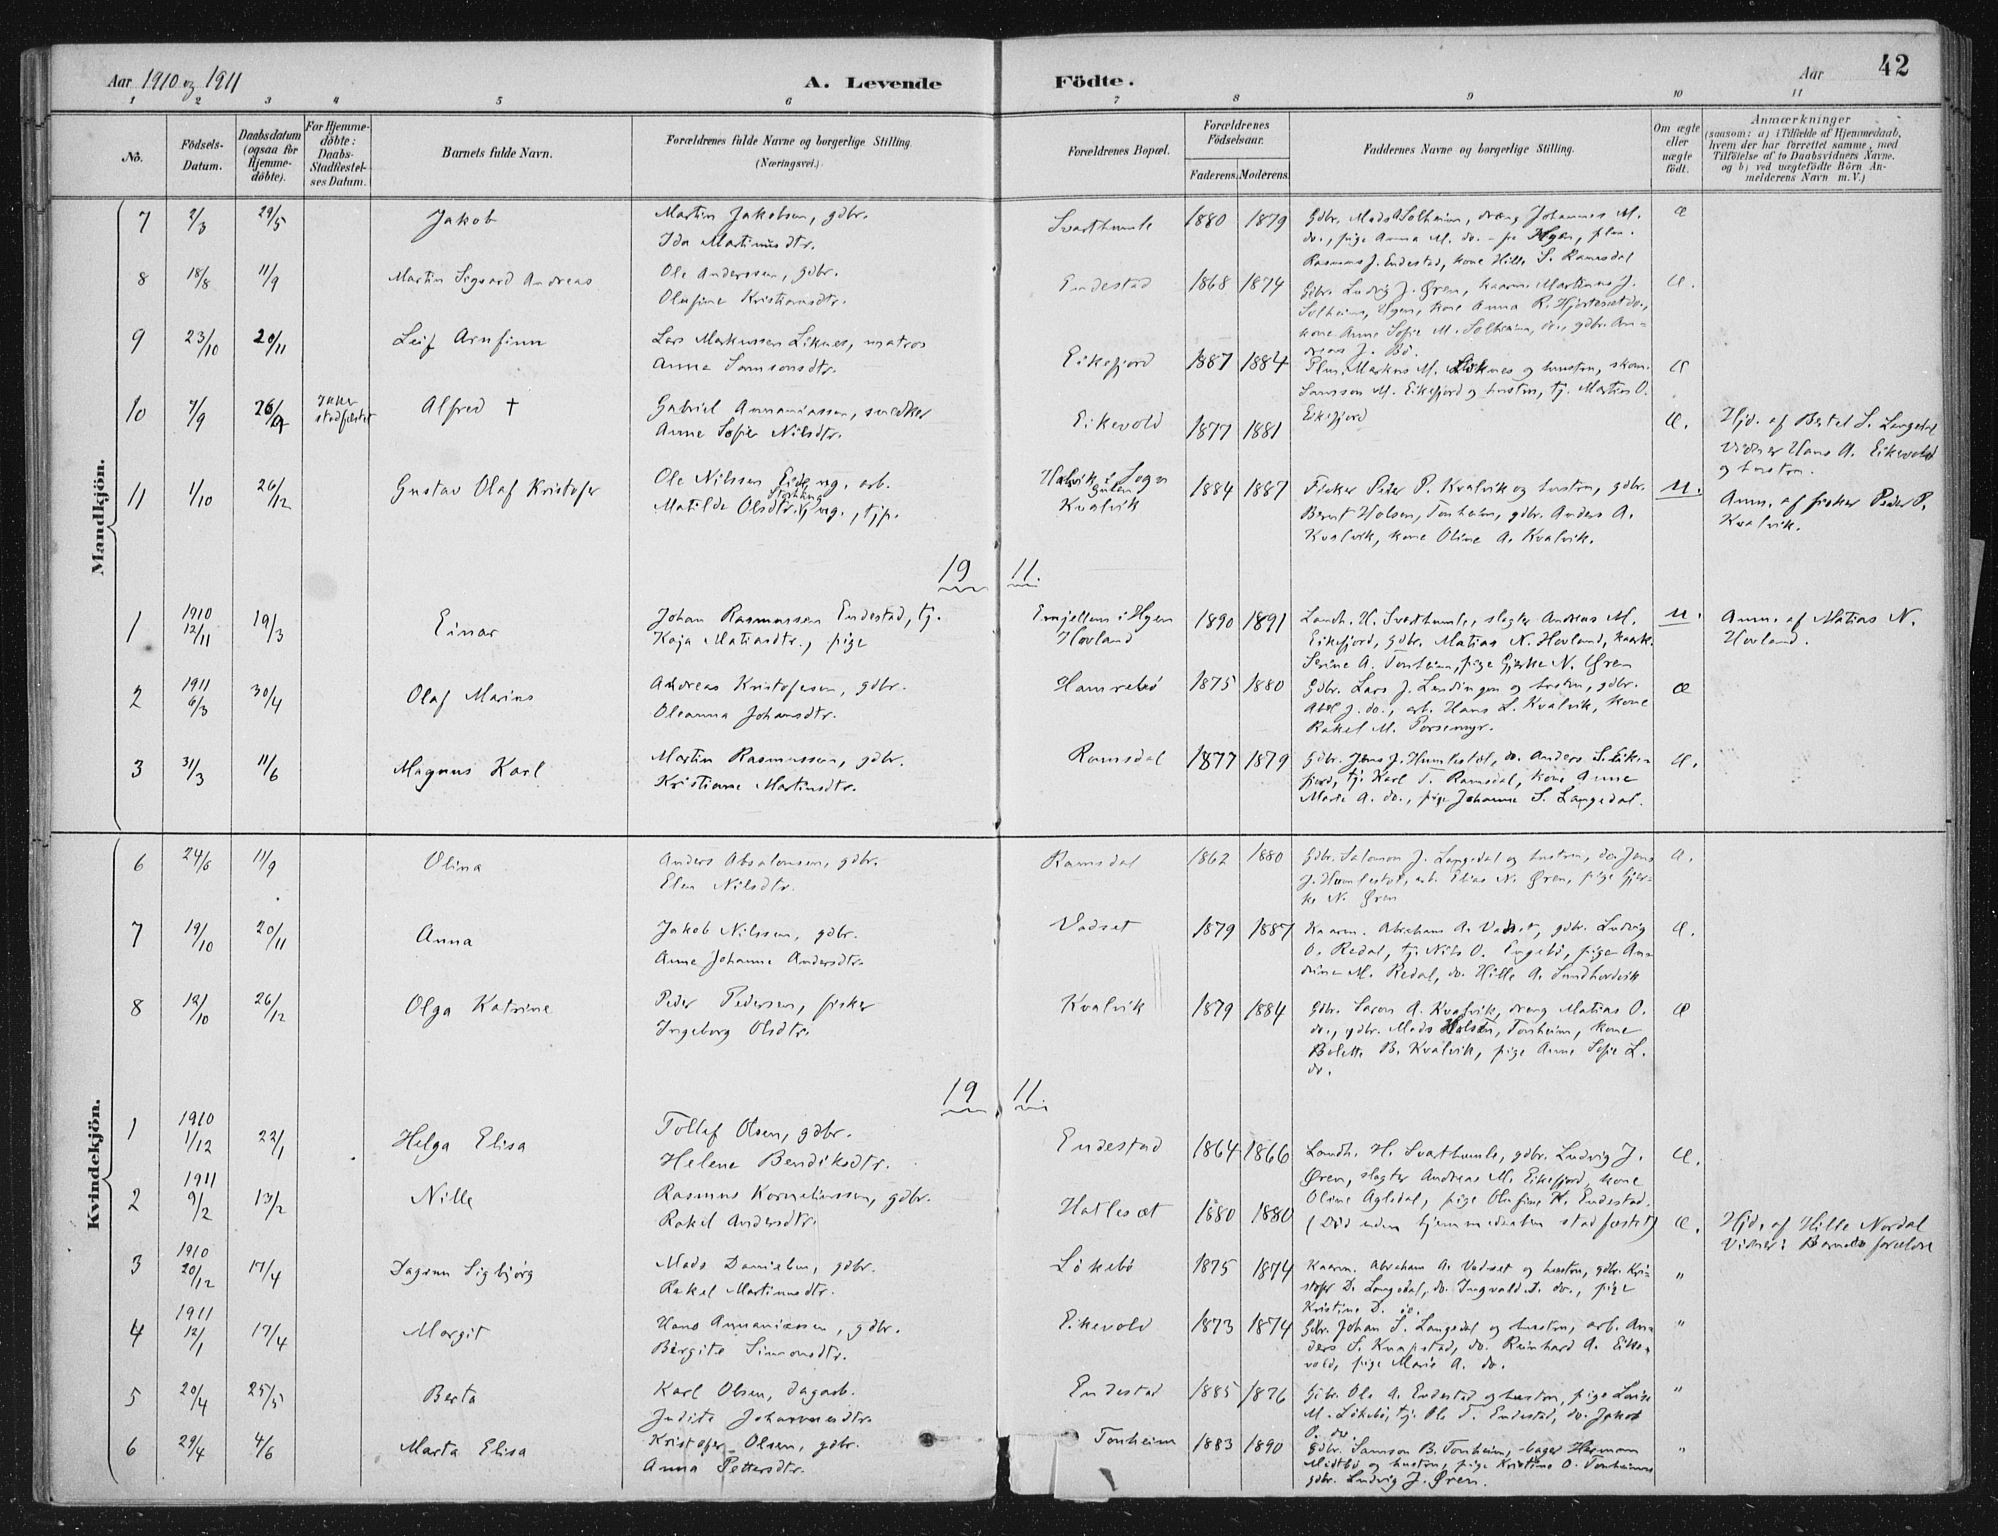 Aar 1910 og 1911
A. Levende
Födte.
Aar
42
1 2 3 4 5 6 7 8 9 10 11
No.
Födsels-Datum.
Daabsdatum (ogsaa for Hjemme-döbte).
For Hjemme-döbte: Daabs-Stadfæstel-ses Datum.
Barnets fulde Navn.
Forældrenes fulde Navne og borgerlige Stilling.
(Næringsvei.)
Forældrenes Bopæl.
Forældrenes Födselsaar.
Faderens. Moderens.
Faddernes Navne og borgerlige Stilling.
Om ægte eller uægte födt.
Anmærkninger
(saasom: a) i Tilfælde af Hjemmedaab, hvem der har forrettet samme, med Tilföielse af to Daabsvidners Navne. og b) ved uægtefödte Börn Anmelderens Navn m. V.)
Mandkjön.
7 2/3 29/5 Jakob Martin Jakobsen, gdbr. Svarthumle 1880 1879 Gdbr. Mads Solheim, dreng Johannes M. æ
Ida Martinusdtr. do., pige Anna M. do.
Rasmus J. Endestad, kone Hille S. Ramsdal
8 18/8 11/9 Martin Sigvard Andreas Ole Anderssen, gdbr. Endestad 1868 1874 Gdbr. Ludvig J. Øren, kaarm. Martinus J. æ.
Olufine Kristiansdtr. Solheim, Hgen, kone Anna R. Hjorteset do.,
kone Anne Sofie M. Solheim, do., gdbr. An-
dreas J. Bö.
9 23/10 20/11 Leif Arnfinn Lars Markussen Liknes, matros Eikefjord 1887 1884 Plm. Markus M. Liknes og hustru, skom. æ
Anna Samsonsdtr. Samson M. Eikefjord og hustru, tj. Martin O.
Eikefjord
10 7/9 26/9 Ikke stadfæstet Alfred † Gabriel Annaniassen, snedker Eikevold 1877 1881 æ. Hjd. af Bertel S. Langedal
Anne Sofie Nilsdtr. Vidner Hans A. Eikevold
og hustru.
11 1/10 26/12 Gustav Olaf Kristofer Ole Nilssen Eide, ug. arb. Halvik i Sogn 1884 1887 Fisker Peder P. Kvalvik og hustru, gdbr. u. Anm. af fisker Peder P.
Matilde Olsdtr. ug., tjp. Gulen Kvalvik Bernt Holsen, Tonheim, gdbr. Anders A. Kvalvik.
Kvalvik, kone Oline A. Kvalvik.
19 11.
1 1910 12/11 19/3 Einar Johan Rasmussen Endestad, tj. Emjellem i Hgen 1890 1891 Landh. H. Svarthumle, slagter Andreas M. u. Anm. af Matias N.
Kaja Matiasdtr., pige Hovland Eikefjord, gdbr. Matias N. Hovland, kaark. Hovland.
Serine A. Tonheim, pige Gjerke N. Øren
2 1911 6/3 30/4 Olaf Marius Andreas Kristofersen, gdbr. Hamrebö 1875 1880 Gdbr. Lars J. Lendingen og hustru, gdbr. æ
Oleanna Johansdtr. Abel J. do., arb. Hans L. Kvalvik, kone
Rakel M. Porsemyr.
3 31/3 11/6 Magnus Karl Martin Rasmussen, gdbr. Ramsdal 1877 1879 Gdbr. Jens J. Humlestöl, do. Anders S. Eike- æ.
Kristianne Martinsdtr. fjord, tj. Karl T. Ramsdal, kone Anne
Marie A. do., pige Johanne S. Langedal.
Kvindekjön.
6 24/6 11/9 Olina Anders Absalonsen, gdbr. Ramsdal 1862 1880 Gdbr. Salomon J. Langedal og hustru, do. Jens æ.
Elen Nilsdtr. J. Humlestöl, arb. Elias N. Øren, pige Gjer-
ke N. Øren
7 19/10 20/11 Anna Jakob Nilssen, gdbr. Vadset 1879 1887 Kaarm. Abraham A. Vadset, gdbr. Ludvig æ.
Anne Johanne Andersdtr. O. Redal, tj. Nils O. Engebö, pige An-
drine M. Redal, do. Hille A. Sundhordvik
8 12/10 26/12 Olga Katrine Peder Pedersen, fisker Kvalvik 1879 1884 Gdbr. Saron A. Kvalvik, dreng Matias O. æ
Ingeborg Olsdtr. do., gdbr. Mads Holsen, Tonheim, kone
Bolette B. Kvalvik, pige Anne Sofie L.
do.
19 11.
1 1910 1/12 22/1 Helga Elisa Tollef Olsen, gdbr. Endestad 1864 1866 Landh. H. Svarthumle, gdbr. Ludvig J. æ.
Helene Bendiksdtr. Øren, slagter Andreas M. Eikefjord, kone
Oline Agledal, pige Olufine K. Endestad.
2 1911 9/2 13/2 Nille Rasmus Korneliussen, gdbr. Hatlesæt 1880 1880 (Död uden hjemmedaaben stadfæstet) æ. Hjd. af Hille Nordal
Rakel Andersdtr. Vidner: Barnets forældre
3 1910 20/12 17/4 Dagrun Sigbjörg Mads Danielsen, gdbr. Lökebö 1875 1874 Kaarm. Abraham A. Vadset og hustru, gdbr. Kri- "
Rakel Martinusdtr. stofer D. Langedal, do. Ingvald D. do., pige
Kristine D. do.
4 1911 12/1 17/4 Margit Hans Annaniassen, gdbr. Eikevold 1873 1874 Gdbr. Johan S. Langedal og hustru, arb. An- "
Birgite Simonsdtr. ders S. Knapstad, do. Reinhard A. Eike-
vold, pige Marie A. do.
5 20/4 25/5 Berta Karl Olsen, dagarb. Endestad 1885 1876 Gdbr. Ole A. Endestad og hustru, pige Lovise "
Judita Johannesdtr. M. Lökebö, tj. Ole T. Endestad, do. Jakob
O. do.
6 29/4 4/6 Marta Elisa Kristofer Olsen, gdbr. Tonheim 1883 1890 Gdbr. Samson B. Tonheim, bager Herman "
Anna Pettersdtr. Midtbö og hustru, pige Kristine O. Tonheim
gdbr. Ludvig J. Øren.